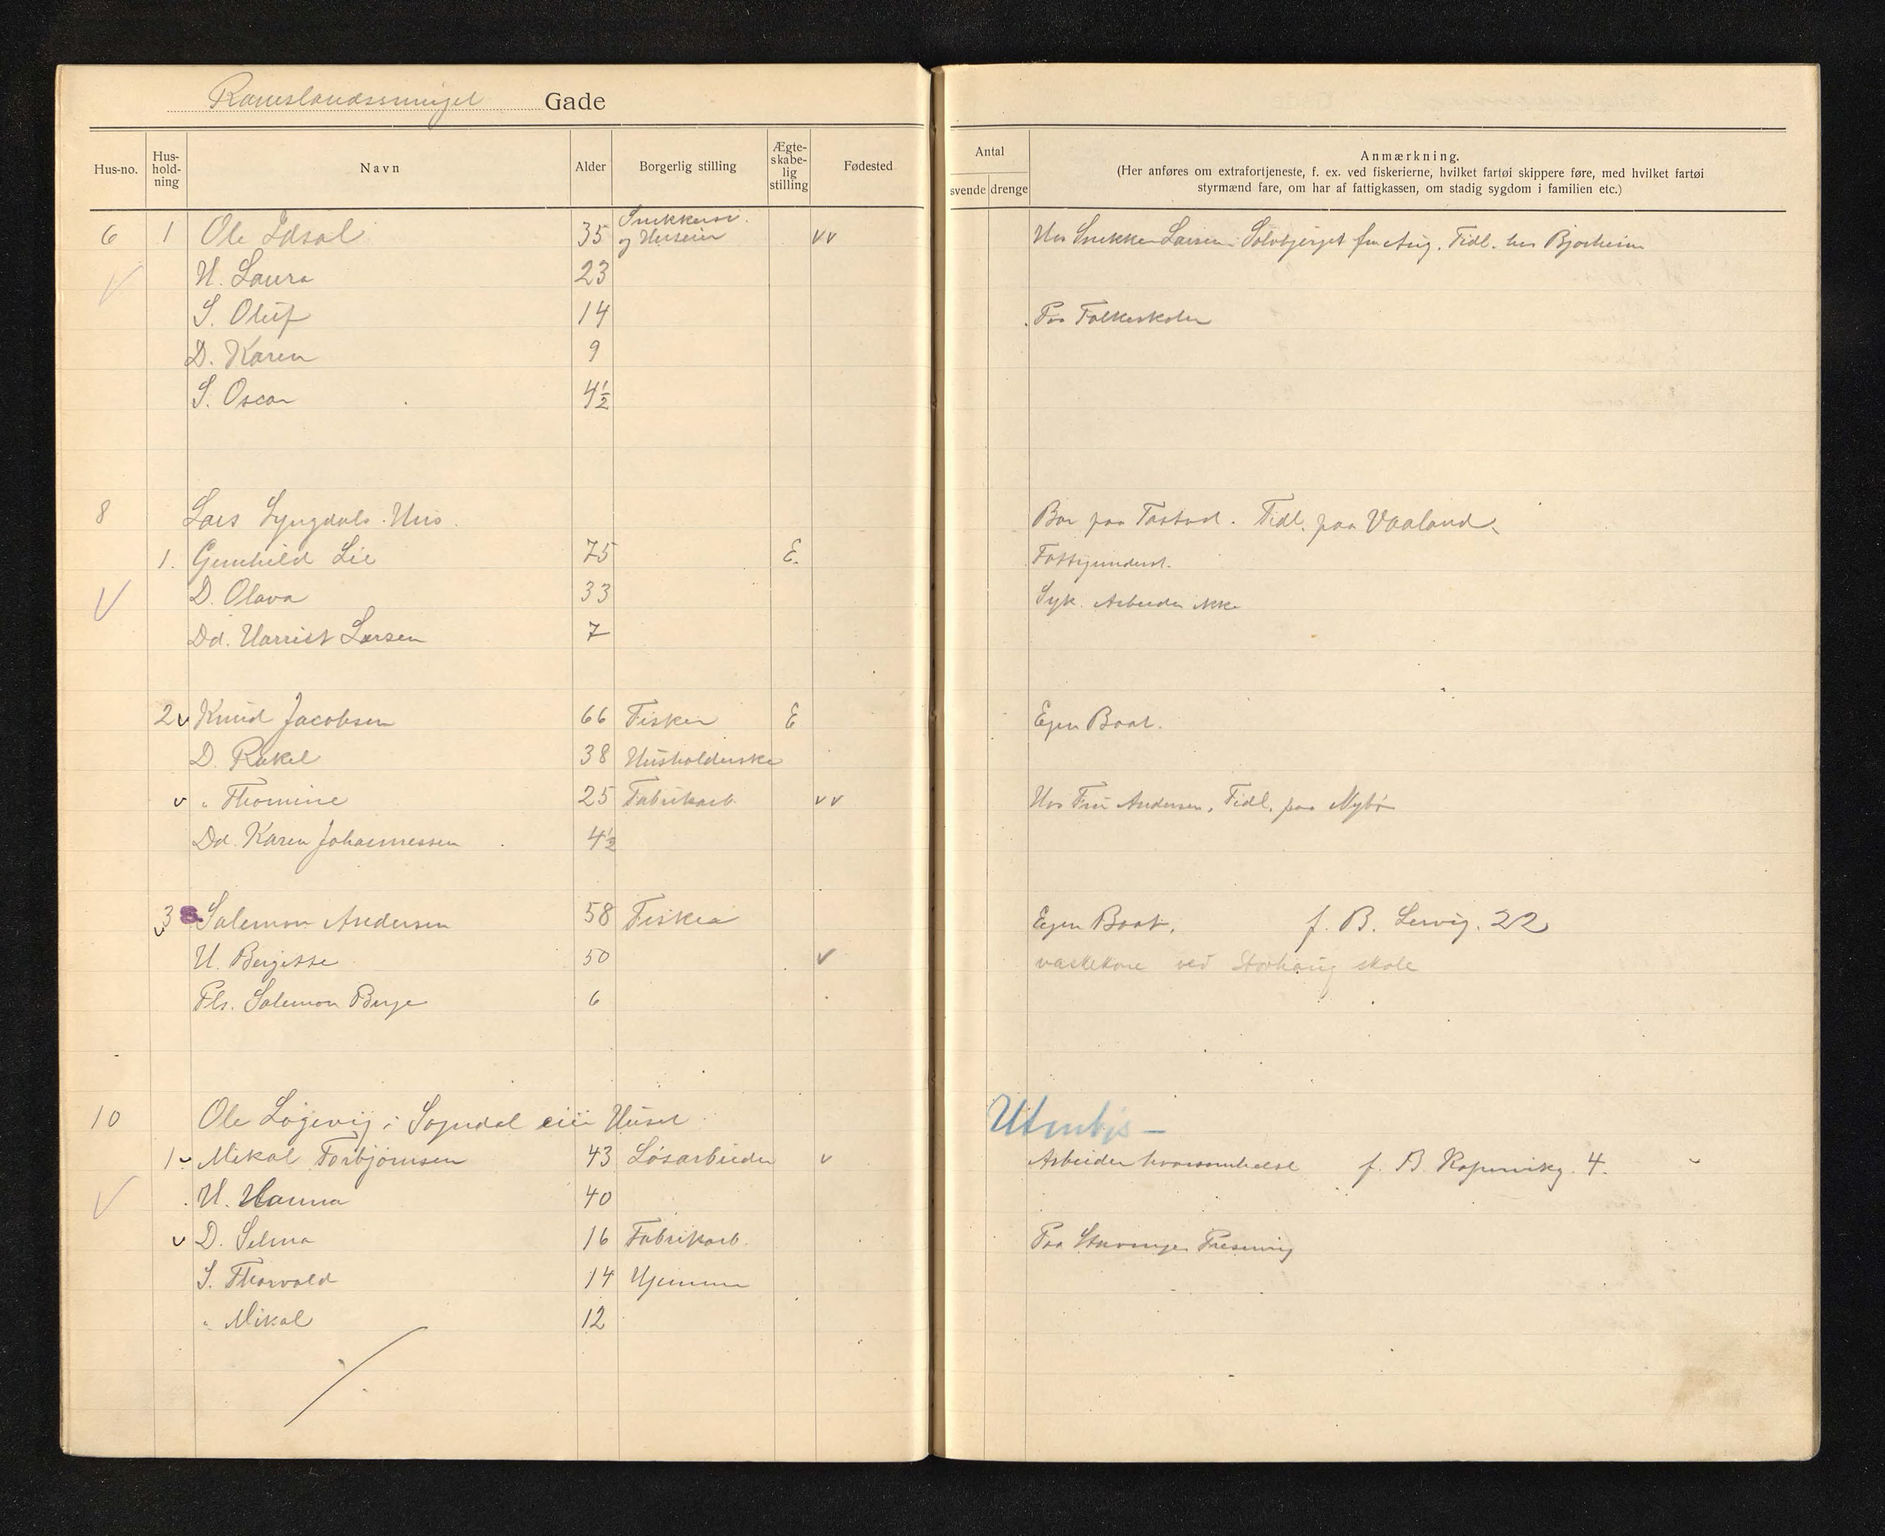 Ramslandssmuget Gade
Hus-no. Hus-hold-ning Navn Alder Borgerlig stilling Ægte-skabe-lig stilling Fødested Antal svende drenge Anmærkning.
(Her anføres om extrafortjeneste, f. ex. ved fiskerierne, hvilket fartøi skippere føre, med hvilket fartøi
styrmænd fare, om har af fattigkassen, om stadig sygdom i familien etc.)
6 1 Ole Idsal 35 Snekkersv. og Huseier vv Hos Snekker Larsen Solvbjerget Tidl. hos Bjorheim
H. Laura 23
S. Oluf 14 Paa Folkeskolen
D. Karen 9
S. Oscar 4½
8 Lars Lyngdals Hus. Bor paa Tastad. Tidl. paa Vaaland.
1. Gunhild Lie 75 E. Fattigunderst.
V D. Olava 33 Syk. Arbeider ikke
Dd. Harriet Larsen 7
2 v Knud Jacobsen 66 Fisker E Egen Baat.
D. Rakel 38 Husholderske
v " Thomine 25 Fabrikarb. vv Hos Fru Andersen, Tidl. paa Nybø
Dd. Karen Johannessen 4½
3 S. Salemon Andersen 58 Fisker Egen Baat. f. B. Lervig. 22
H. Bergitte 50 v vaskekone ved Storhaug skole
Pls. Salemon Berge 6
10 Ole Løgevig i Sogndal eier Huset Utenbys -
1 v Mikal Torbjørnsen 43 Løsarbeider v Arbeider hvorsomhelst f. B. 4.
V H. Hanna 40
v D. Selma 16 Fabrikarb. Paa Stavanger Preserving
S. Thorvald 14 Hjemme
" Mikal 12